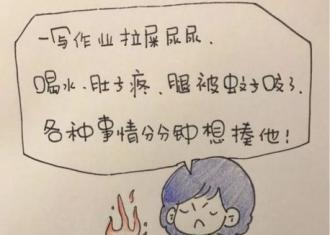 一写作业拉屎尿尿.
喝水.肚子疼.腿被蚊子咬了.
各种事情分分钟想揍他!